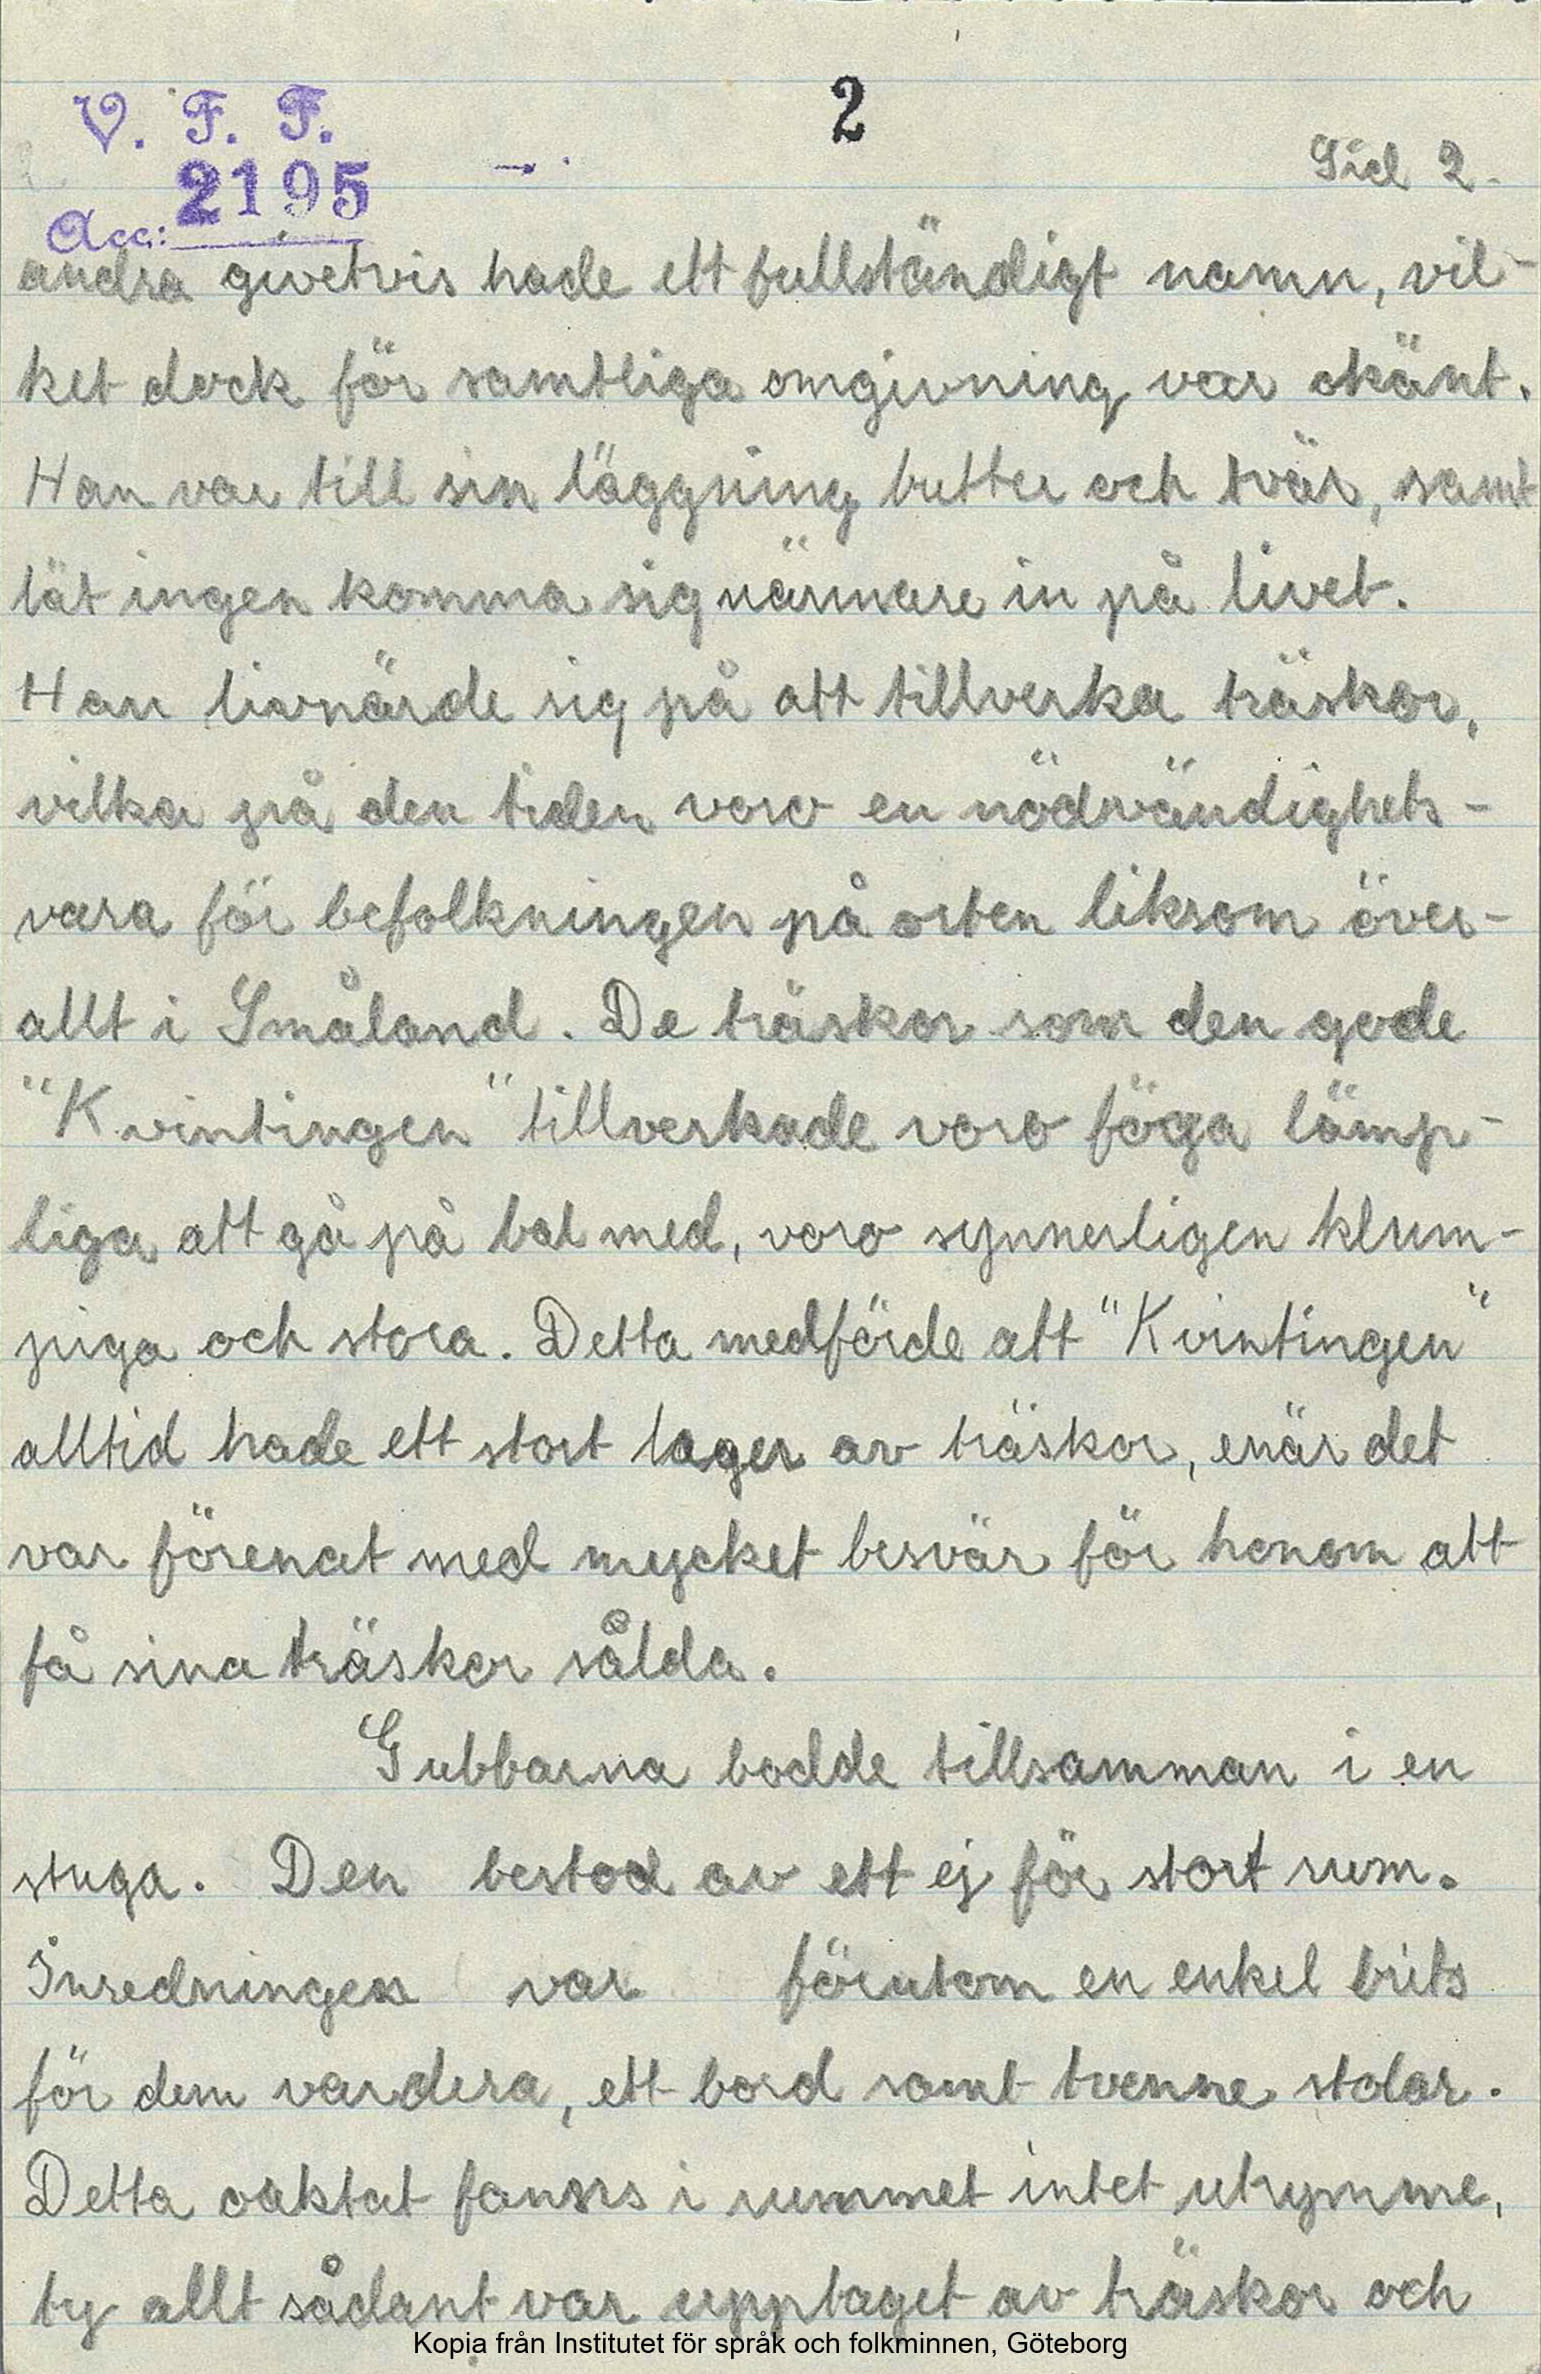 V. F. F.
2
2195
Sid 2.
Acc:
andra givetvis hade ett fullständigt namn, vil-
ket dock för samtliga omgivning var okänt.
Han var till sin läggning butter och tvär, samt
lät ingen komma sig närmare in på livet.
Han livnärde sig på att tillverka träskor,
vilka på den tiden voro en nödvändighets-
vara för befolkningen på orten liksom över-
allt i Småland. De träskor som den gode
"Kvintingen" tillverkade voro föga lämp-
liga att gå på bal med, voro synnerligen klum-
piga och stora. Detta medförde att "Kvintingen"
alltid hade ett stort lager av träskor, enär det
var förenat med mycket besvär för honom att
få sina träskor sålda.
Gubbarna bodde tillsamman i en
stuga. Den bestod av ett ej för stort rum.
Inredningen var förutom en enkel brits
för dem vardera, ett bord samt tvenne stolar.
Detta oaktat fanns i rummet intet utrymme,
ty allt sådant var upptaget av träskor och
Kopia från Institutet för språk och folkminnen, Göteborg